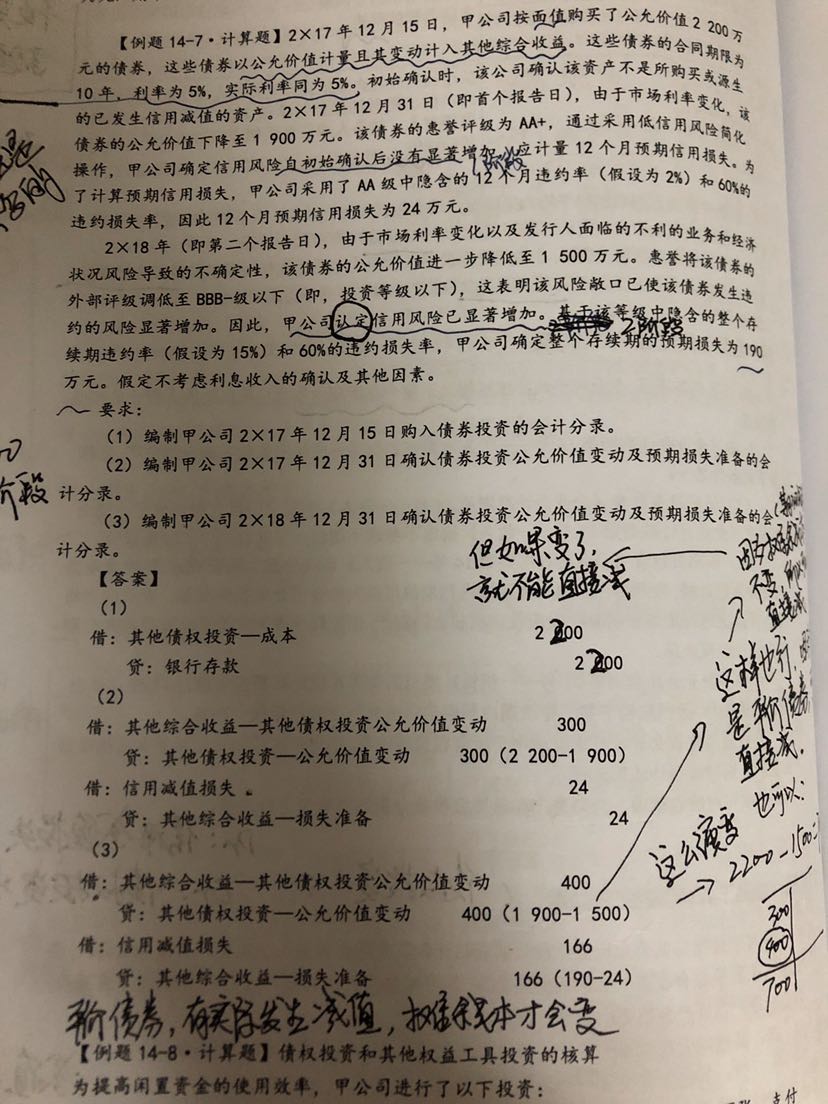 【例题 14-7·计算题】2×17 年 12 月 15 日，甲公司按面值购买了公允价值 2 200 万
元的债券，这些债券以公允价值计量且其变动计入其他综合收益。这些债券的合同期限为
10 年，利率为 5%，实际利率同为 5%。初始确认时，该公司确认该资产不是所购买或源生
的已发生信用减值的资产。2×17 年 12 月 31 日（即首个报告日），由于市场利率变化，该
债券的公允价值下降至 1 900 万元。该债券的惠誉评级为 AA+，通过采用低信用风险简化
操作，甲公司确定信用风险自初始确认后没有显著增加，应计量 12 个月预期信用损失。为
了计算预期信用损失，甲公司采用了 AA 级中隐含的 12 个月违约率（假设为 2%）和 60%的
违约损失率，因此 12 个月预期信用损失为 24 万元。
2×18 年（即第二个报告日），由于市场利率变化以及发行人面临的不利的业务和经济
状况风险导致的不确定性，该债券的公允价值进一步降低至 1 500 万元。惠誉将该债券的
外部评级调低至 BBB-级以下（即，投资等级以下），这表明该风险敞口已使该债券发生违
约的风险显著增加。因此，甲公司认定信用风险已显著增加。基于该等级中隐含的整个存
2阶段
续期违约率（假设为 15%）和 60%的违约损失率，甲公司确定整个存续期的预期损失为 190
万元。假定不考虑利息收入的确认及其他因素。
要求：
（1）编制甲公司 2×17 年 12 月 15 日购入债券投资的会计分录。
（2）编制甲公司 2×17 年 12 月 31 日确认债券投资公允价值变动及预期损失准备的会
计分录。
（3）编制甲公司 2×18 年 12 月 31 日确认债券投资公允价值变动及预期损失准备的会
计分录。
但如果变了，
就不能直接减
不变，所以
直接减
【答案】
（1）
借：其他债权投资—成本 2 200
贷：银行存款 2 200
（2）
借：其他综合收益—其他债权投资公允价值变动 300
贷：其他债权投资—公允价值变动 300（2 200-1 900）
借：信用减值损失 24
贷：其他综合收益—损失准备 24
（3）
借：其他综合收益—其他债权投资公允价值变动 400
贷：其他债权投资—公允价值变动 400（1 900-1 500）
借：信用减值损失 166
贷：其他综合收益—损失准备 166（190-24）
这样也行，因
是平价债券
直接减，
也可以：
→ 2200-1500=
300
400
700
平价债券，有实际发生减值，摊余成本才会变
【例题 14-8·计算题】债权投资和其他权益工具投资的核算
为提高闲置资金的使用效率，甲公司进行了以下投资：